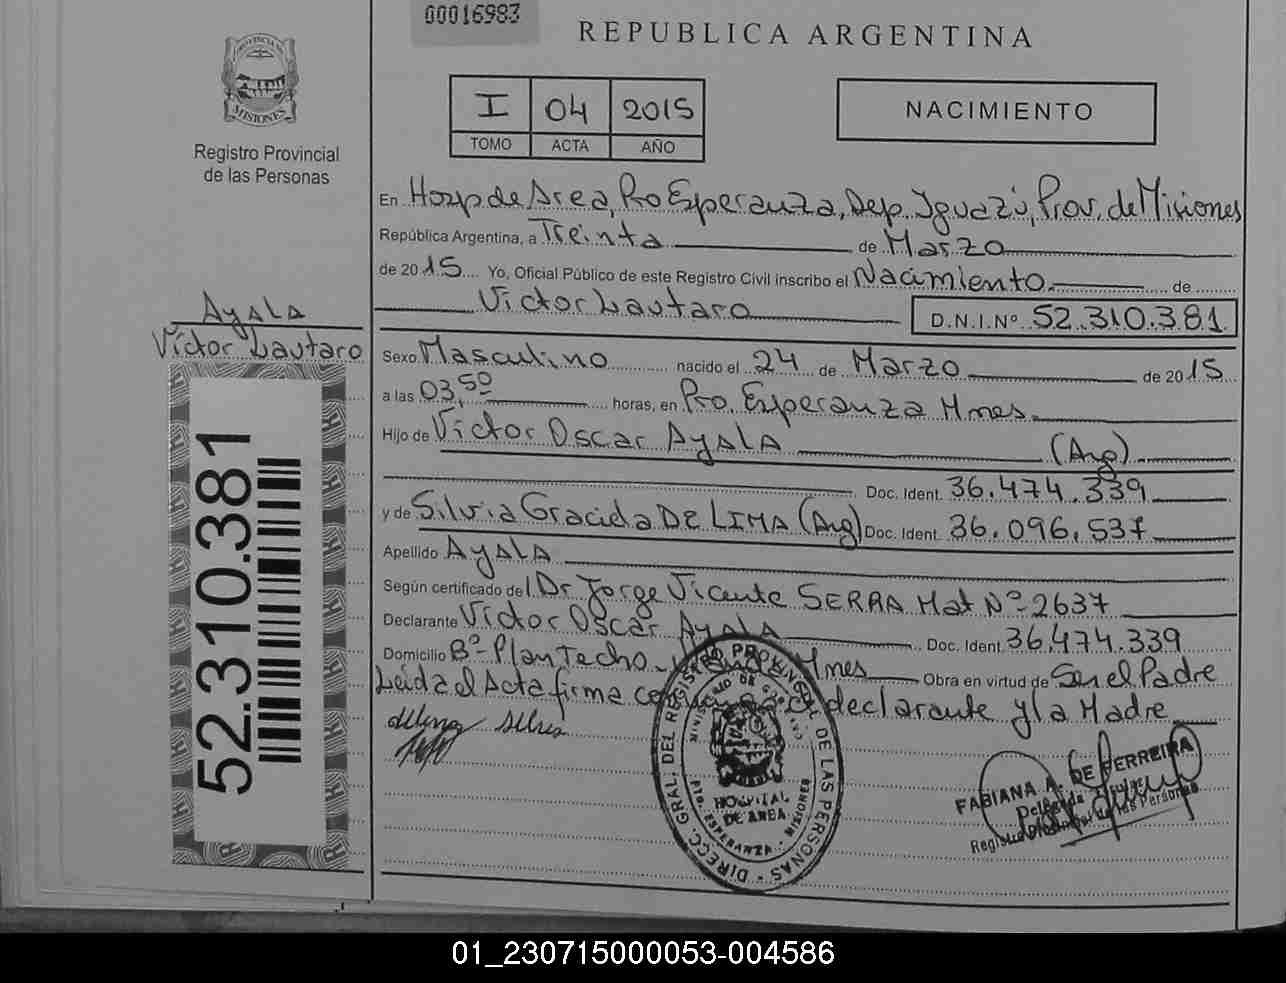 00016983
REPUBLICA ARGENTINA
MISIONES
Registro Provincial
de las Personas
I 04 2015
TOMO ACTA AÑO
NACIMIENTO
En Hosp de Area, Pto Esperanza, Dep. Iguazú, Prov. de Misiones
República Argentina, a Treinta de Marzo
de 2015 Yo, Oficial Público de este Registro Civil inscribo el Nacimiento de
Victor Lautaro
D.N.I.Nº 52.310.381
Ayala
Víctor Lautaro
52.310.381
Sexo Masculino nacido el 24 de Marzo de 2015
a las 03,50 horas, en Pto. Esperanza Mnes.
Hijo de Víctor Oscar Ayala (Arg)
Doc. Ident. 36.474.339
y de Silvia Gracida DE LIMA (Arg) Doc. Ident. 36.096.537
Apellido Ayala
Según certificado del Dr Jorge Vicente SERRA Mat Nº 2637
Declarante Víctor Oscar Ayala Doc. Ident. 36.474.339
Domicilio Bº Plan Techo Mnes Obra en virtud de Ser el Padre
Leída el Acta firma declarante y la Madre
DIRECC. GRAL. DEL REGISTRO PROVINCIAL DE LAS PERSONAS
MINISTERIO DE GOBIERNO
HOSPITAL
DE AREA
PTO. ESPERANZA - MISIONES
FABIANA A. DE FERREIRA
Delegada Titular
Registro Provincial de las Personas
01_230715000053-004586